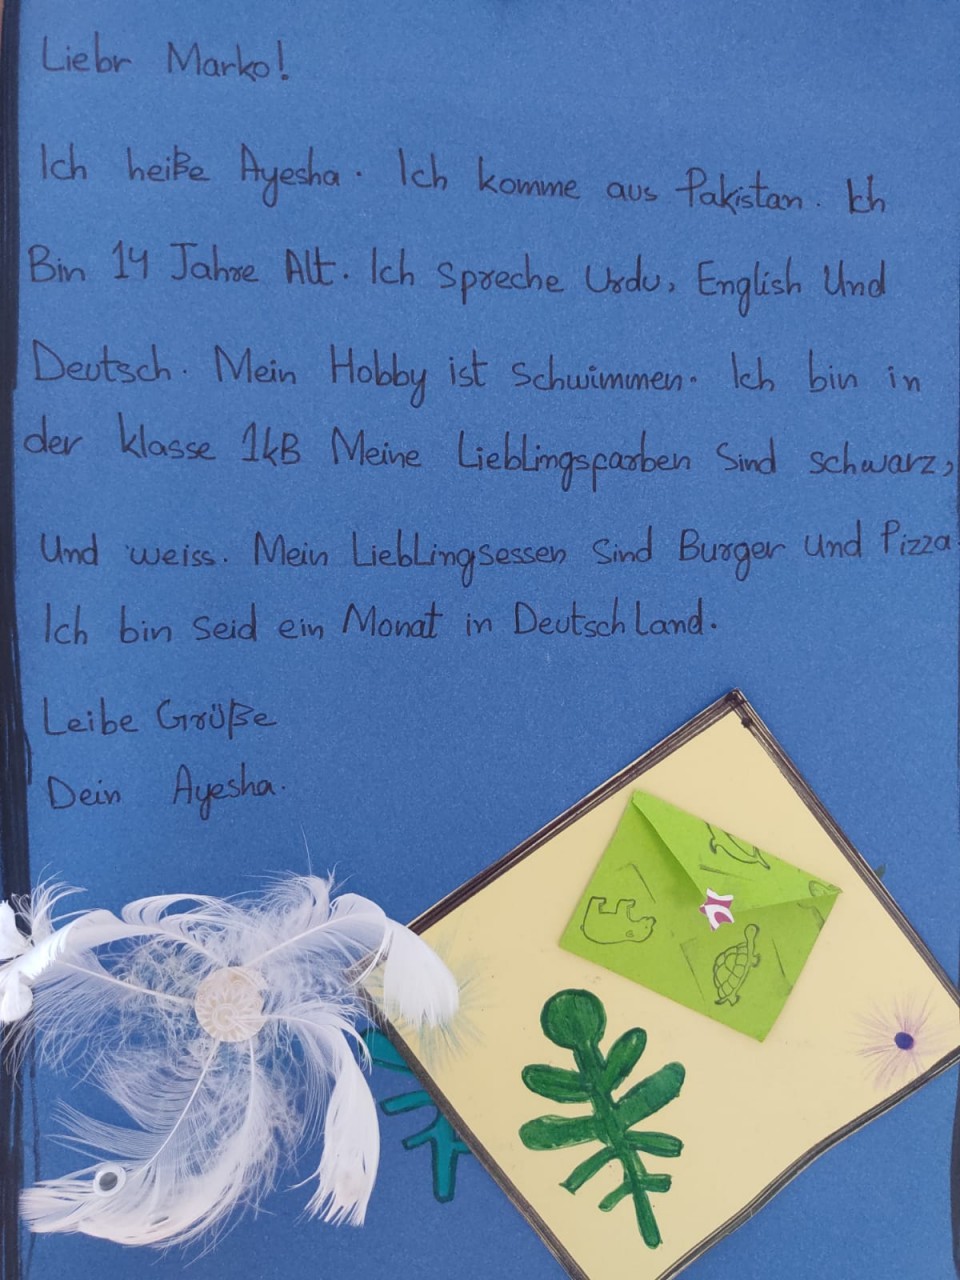 Liebr Marko!
Ich heiße Ayesha. Ich komme aus Pakistan. Ich
Bin 14 Jahre Alt. Ich spreche Urdu, English Und
Deutsch. Mein Hobby ist schwimmen. Ich bin in
der klasse 1kB Meine Lieblingsparben Sind schwarz,
Und weiss. Mein Lieblingsessen Sind Burger Und Pizza
Ich bin Seid ein Monat in Deutschland.
Leibe Grüße
Dein Ayesha.